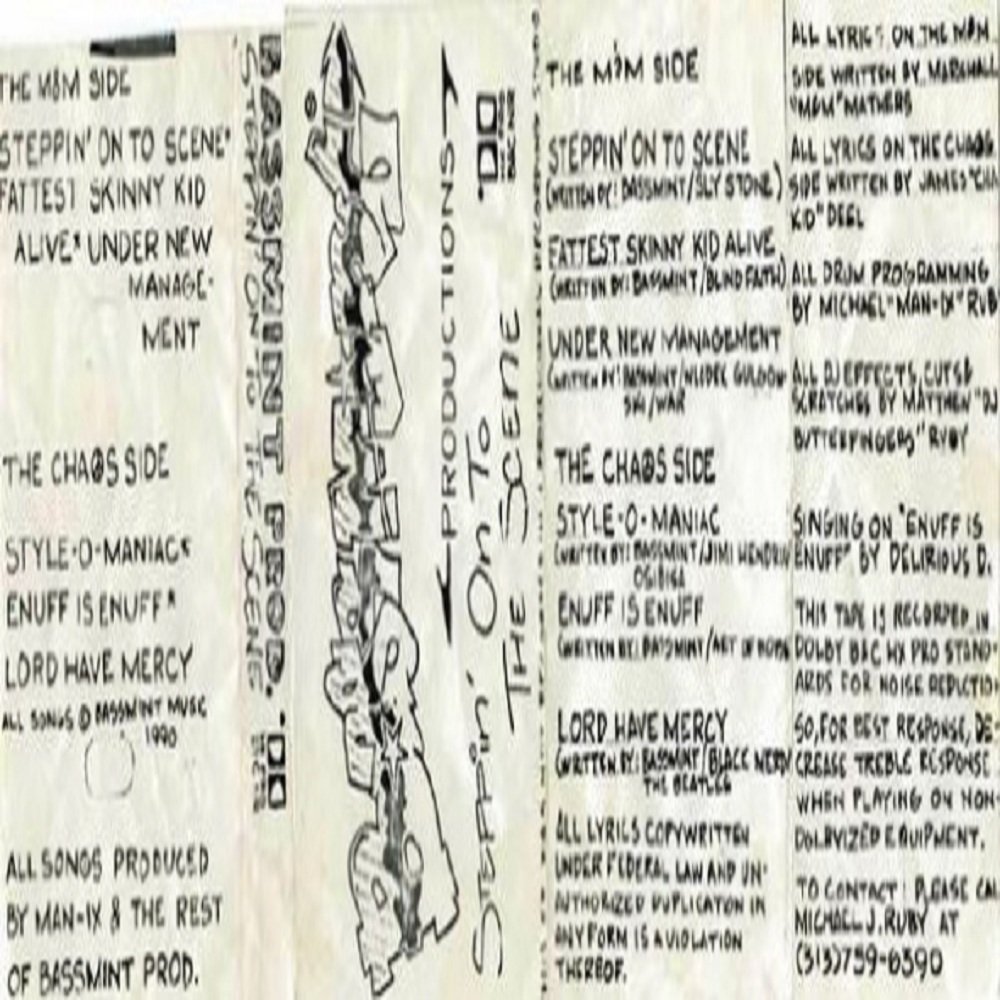 THE M&M SIDE
STEPPIN' ON TO SCENE*
FATTEST SKINNY KID
ALIVE* UNDER NEW
MANAGE-
MENT
THE CHAOS SIDE
STYLE-O-MANIAC*
ENUFF IS ENUFF*
LORD HAVE MERCY
ALL SONGS © BASSMINT MUSIC
1990
ALL SONGS PRODUCED
BY MAN-IX & THE REST
OF BASSMINT PROD.
BASSMINT PROD.
STEPPIN' ON TO THE SCENE
PRODUCTIONS
STEPPIN' ON TO
THE SCENE
THE M&M SIDE
STEPPIN' ON TO SCENE
(WRITTEN BY: BASSMINT/SLY STONE)
FATTEST SKINNY KID ALIVE
(WRITTEN BY: BASSMINT/BLIND FAITH)
UNDER NEW MANAGEMENT
(WRITTEN BY: BASSMINT/
/WAR
THE CHAOS SIDE
STYLE-O-MANIAC
(WRITTEN BY: BASSMINT/JIMI HENDRIX
OSIBISA
ENUFF IS ENUFF
(WRITTEN BY: BASSMINT/ART OF NOISE
LORD HAVE MERCY
(WRITTEN BY: BASSMINT/
THE BEATLES
ALL LYRICS COPYWRITTEN
UNDER FEDERAL LAW AND UN-
AUTHORIZED DUPLICATION IN
ANY FORM IS A VIOLATION
THEREOF.
ALL LYRICS ON THE M&M
SIDE WRITTEN BY MARSHALL
"M&M" MATHERS
ALL LYRICS ON THE CHAOS
SIDE WRITTEN BY JAMES "CHA
KID" DEEL
ALL DRUM PROGRAMMING
BY MICHAEL "MAN-IX" RUB
ALL DJ EFFECTS, CUTS &
SCRATCHES BY MATTHEW "DJ
BUTTERFINGERS" RUBY
SINGING ON "ENUFF IS
ENUFF" BY DELIRIOUS D.
THIS TAPE IS RECORDED IN
DOLBY B&C HX PRO STAND-
ARDS FOR NOISE REDUCTIO
SO, FOR BEST RESPONSE, DE-
CREASE TREBLE RESPONSE
WHEN PLAYING ON NON-
DOLBYIZED EQUIPMENT.
TO CONTACT: PLEASE CAL
MICHAEL J. RUBY AT
(313)759-6390